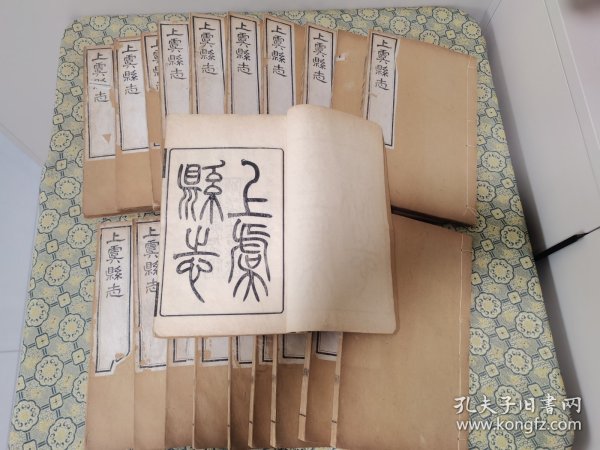 上虞縣志
上虞縣志
上虞縣志
上虞縣志
上虞縣志
上虞縣志
上虞縣志
上虞縣志
上虞
縣志
上虞縣志
上虞
孔夫子旧书网
www.kongfz.com